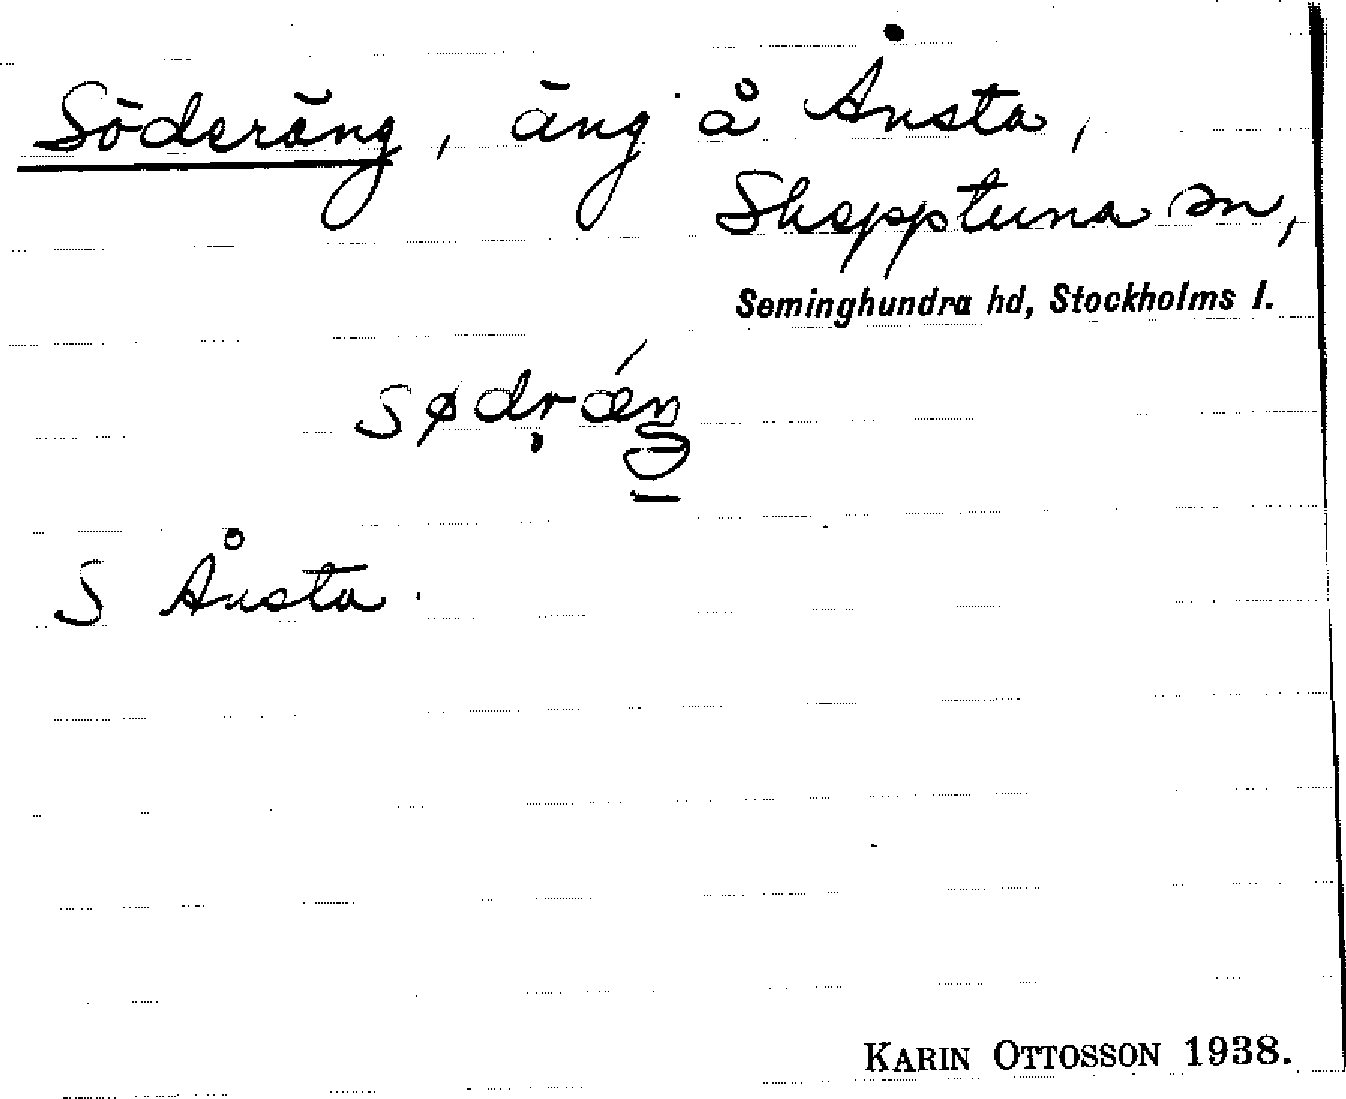 Söderäng, äng å Ånsta,
Skepptuna sn,
Seminghundra hd, Stockholms l.
sødṛǽŋ
S Ånsta.
KARIN OTTOSSON 1938.